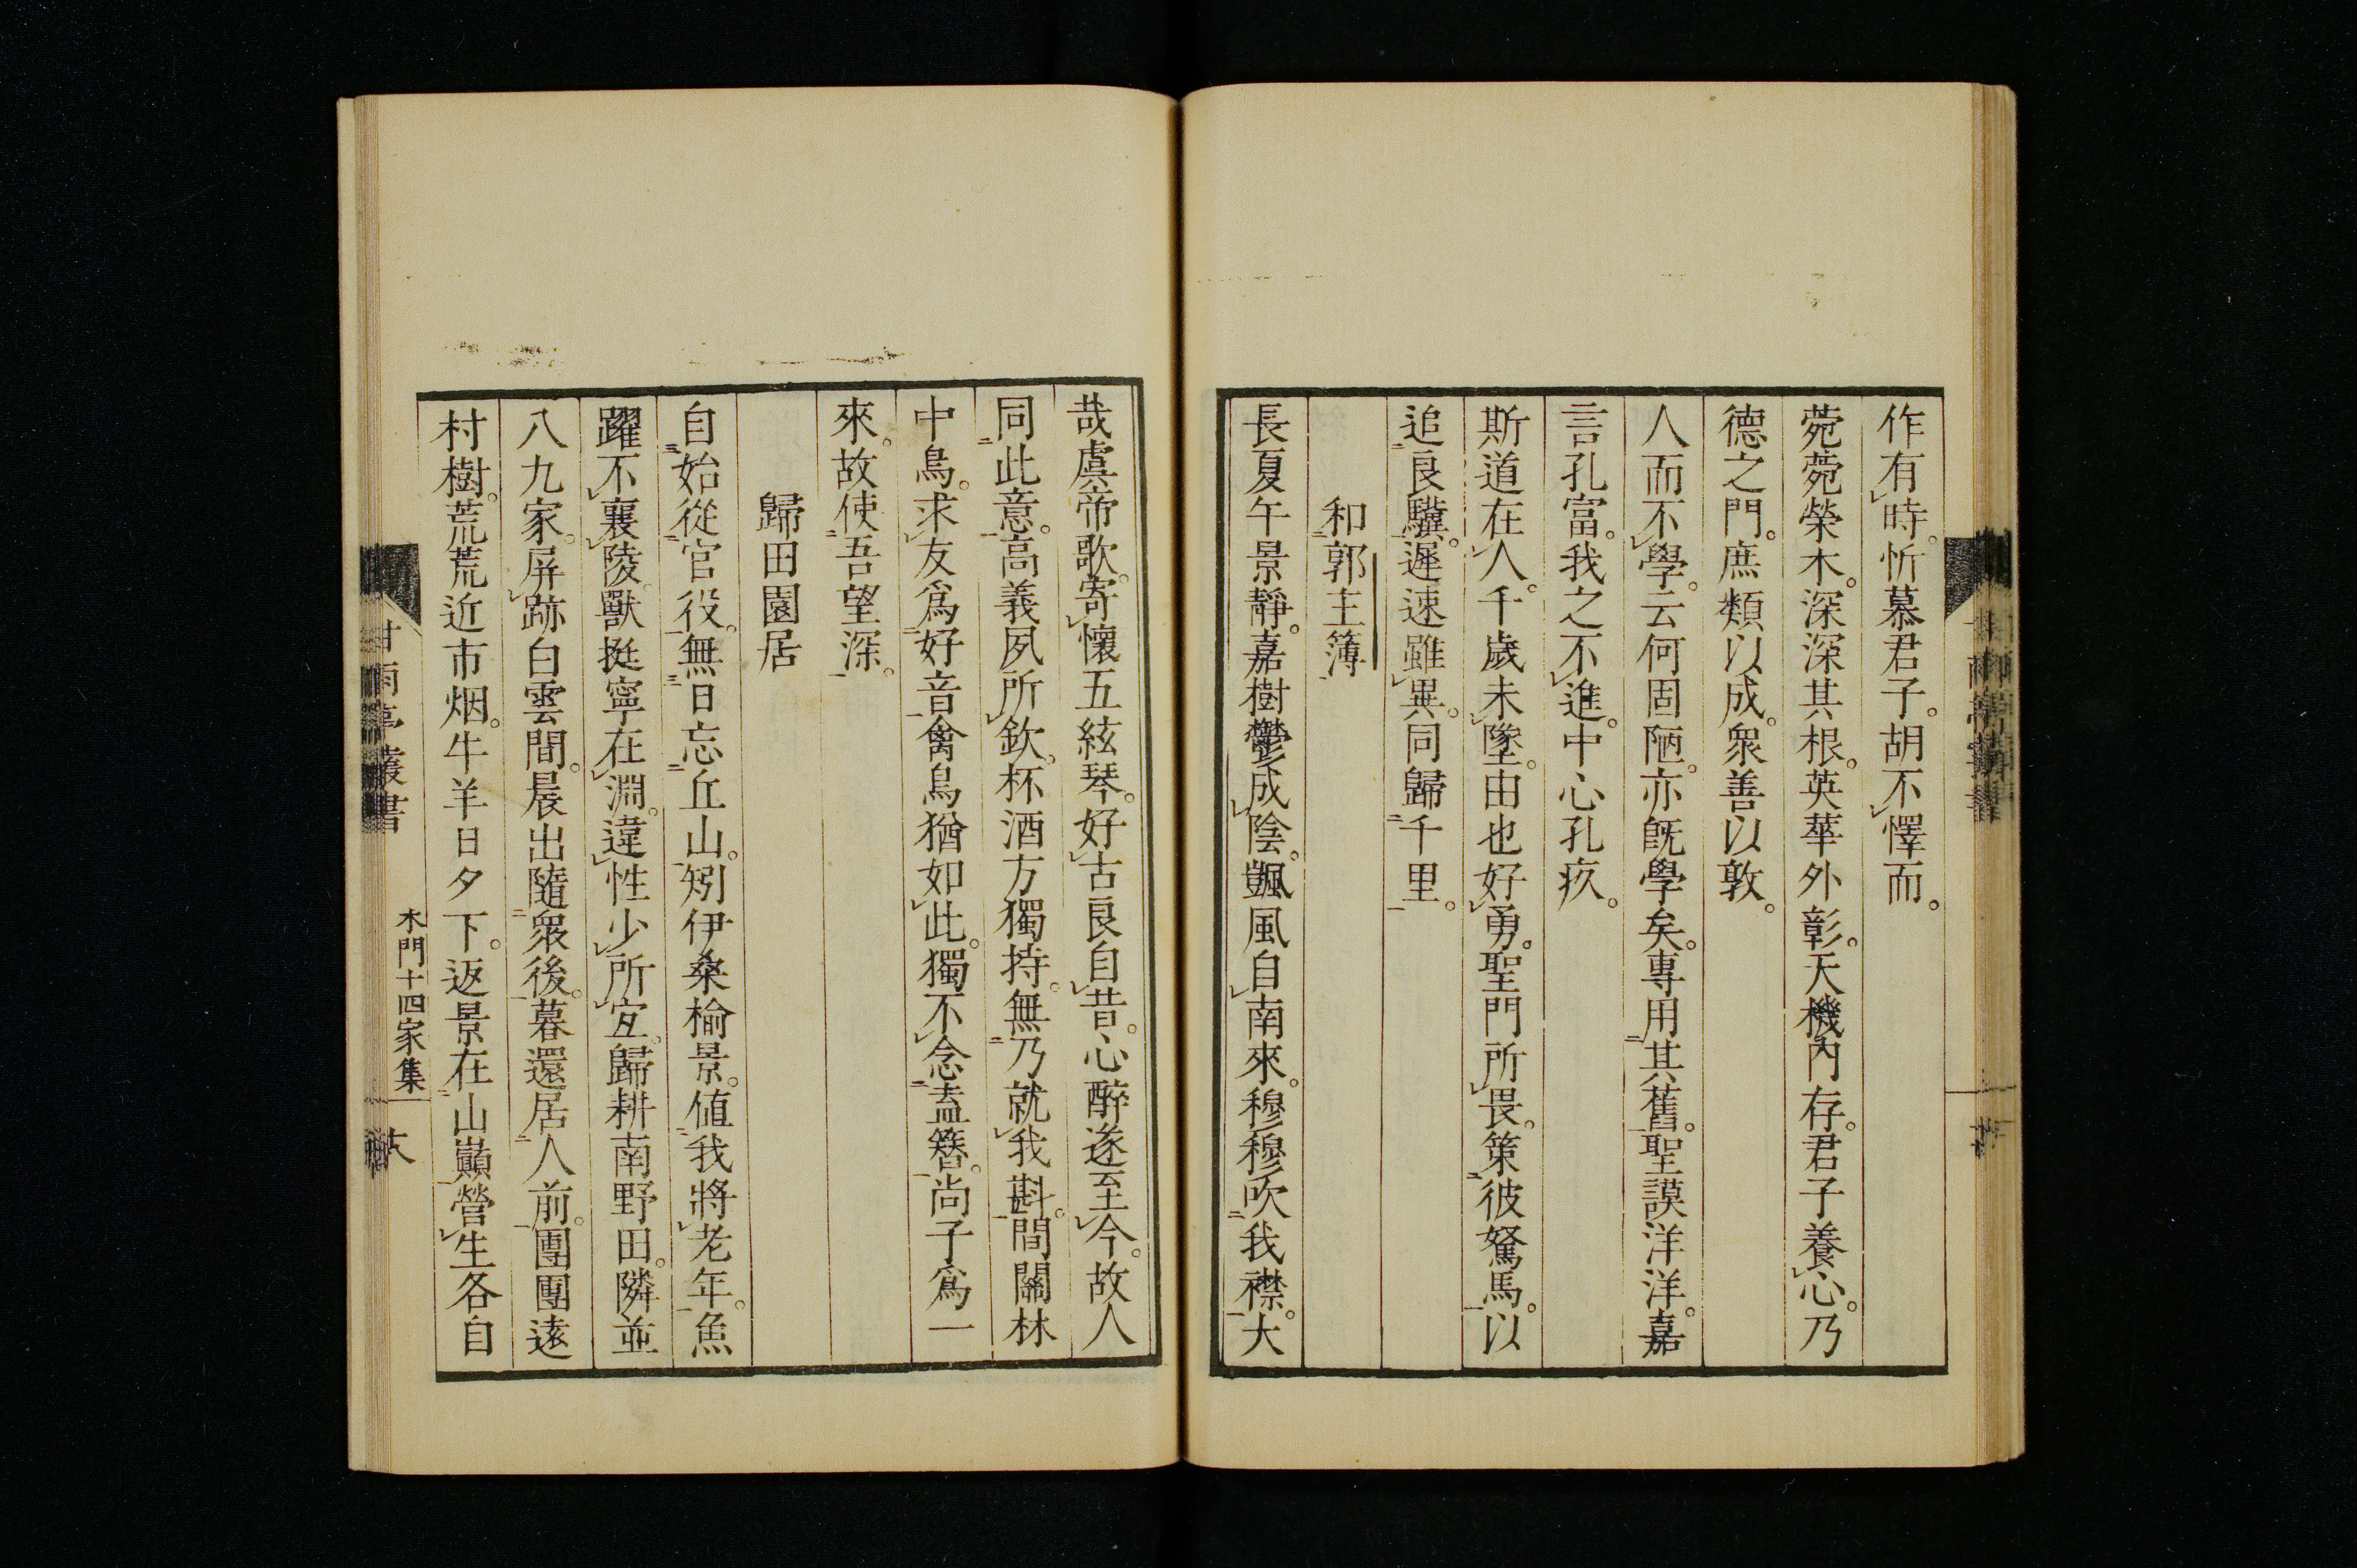 作有時。忻慕君子。胡不懌而。
菀菀榮木。深深其根。英華外彰。天機內存。君子養心。乃
德之門。庶類以成。衆善以敦。
人而不學。云何固陋。亦既學矣。專用其舊。聖謨洋洋。嘉
言孔富。我之不進。中心孔疚。
斯道在人。千歲未墜。由也好勇。聖門所畏。策彼駑馬。以
追良驥。遲速雖異。同歸千里。
和郭主簿
長夏午景靜。嘉樹鬱成陰。凱風自南來。穆穆吹我襟。大
哉虞帝歌。寄懷五絃琴。好古良自昔。心醉遂至今。故人
同此意。高義夙所欽。杯酒方獨持。無乃就我斟。間關林
中鳥。求友爲好音。禽鳥猶如此。獨不念盍簪。尚子爲一
來。故使吾望深。
歸田園居
自始從官役。無日忘丘山。矧伊桑榆景。値我將老年。魚
躍不襄陵。獸挺寧在淵。違性少所宜。歸耕南野田。隣並
八九家。屏跡白雲間。晨出隨衆後。暮還居人前。團團遠
村樹。荒荒近市烟。牛羊日夕下。返景在山巓。營生各自
甘雨亭叢書
木門十四家集